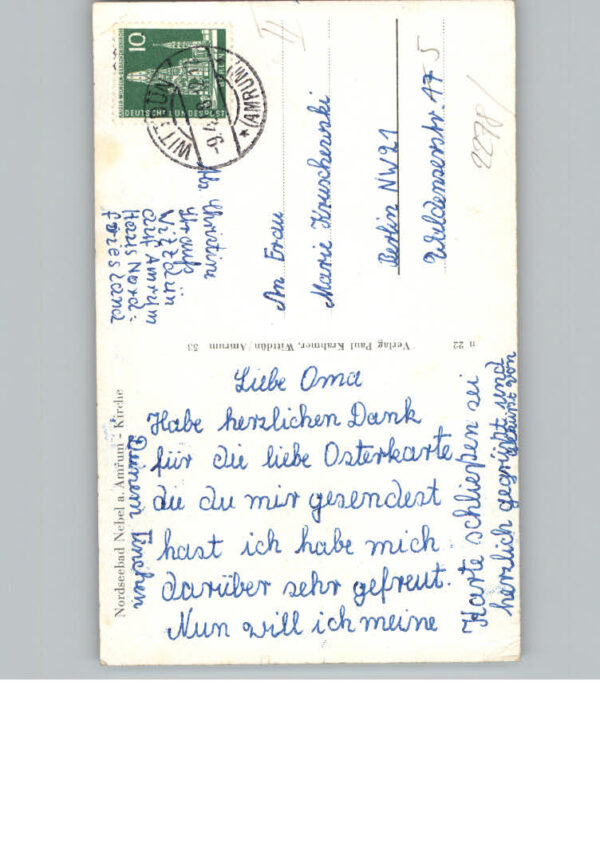 Liebe Oma
Habe herzlichen Dank
für die liebe Osterkarte
die du mir gesendest
hast ich habe mich
darüber sehr gefreut.
Nun will ich meine
Karte schließen sei
herzlich gegrüßt und
geküßt von
An Frau
Marie Kruschewski
Berlin NW21
Waldenserstr. 17
5
2278/
Ab. Christine
Strauß
Wittdün
auf Amrum
Haus Nord=
friesland
Nordseebad Nebel a. Amrum - Kirche
Verlag Paul Krahmer, Wittdün/Amrum 53
n 22
10
WITTDÜN
* (AMRUM)